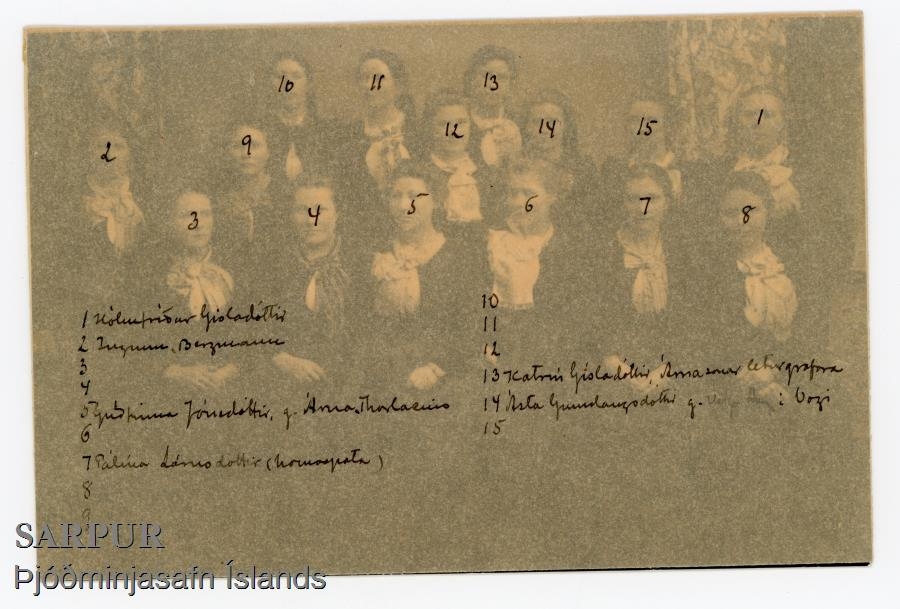 10 11 13
2 9 12 14 15 1
3 4 5 6 7 8
1 Hólmfríður Gísladóttir
2 Ingunn Bergmann
3
4
5 Guðfinna Jónsdóttir, g. Árna Thorlacius
6
7 Pálína (homeopata)
8
9
10
11
12
13 Katrín Gísladóttir, Árnasonar leturgrafara
14 Ásta Gunnlaugsdóttir g. : Vogi
15
SARPUR
Þjóðminjasafn Íslands